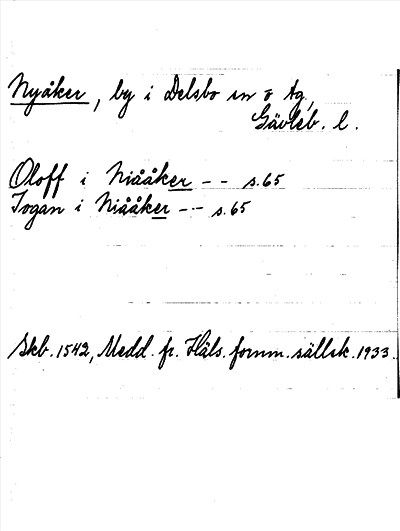 Nyåker, by i Delsbo sn o tg,
Gävleb. l.
Oloff i Niååker -- s. 65
Jogan i Niååker -- s. 65
Skb. 1542, Medd. fr. Häls. fornm. sällsk. 1933.